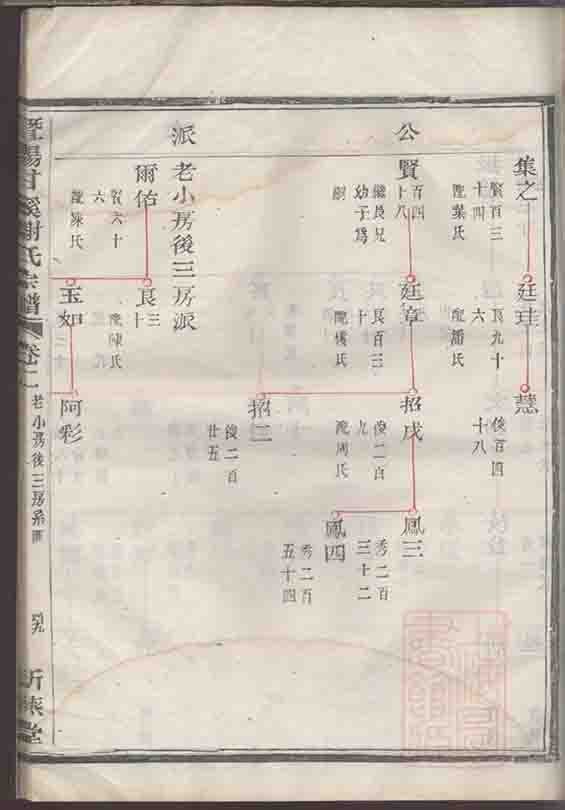 公
派
集之
賢百三
十四
配葉氏
廷珪
良九十
六
配潘氏
慧
俊百四
十八
賢
百四
十八
繼良兄
幼子爲
嗣
廷章
良百三
十
招戌
俊二百
九
配周氏
招三
俊二百
廿五
鳳三
秀二百
三十二
鳳四
秀二百
五十四
老小房後三房派
爾佑
賢六十
六
配陳氏
良
三
十
配陳氏
玉如
阿彩
暨陽甘溪謝氏宗譜
卷二
老小房後三房系圖